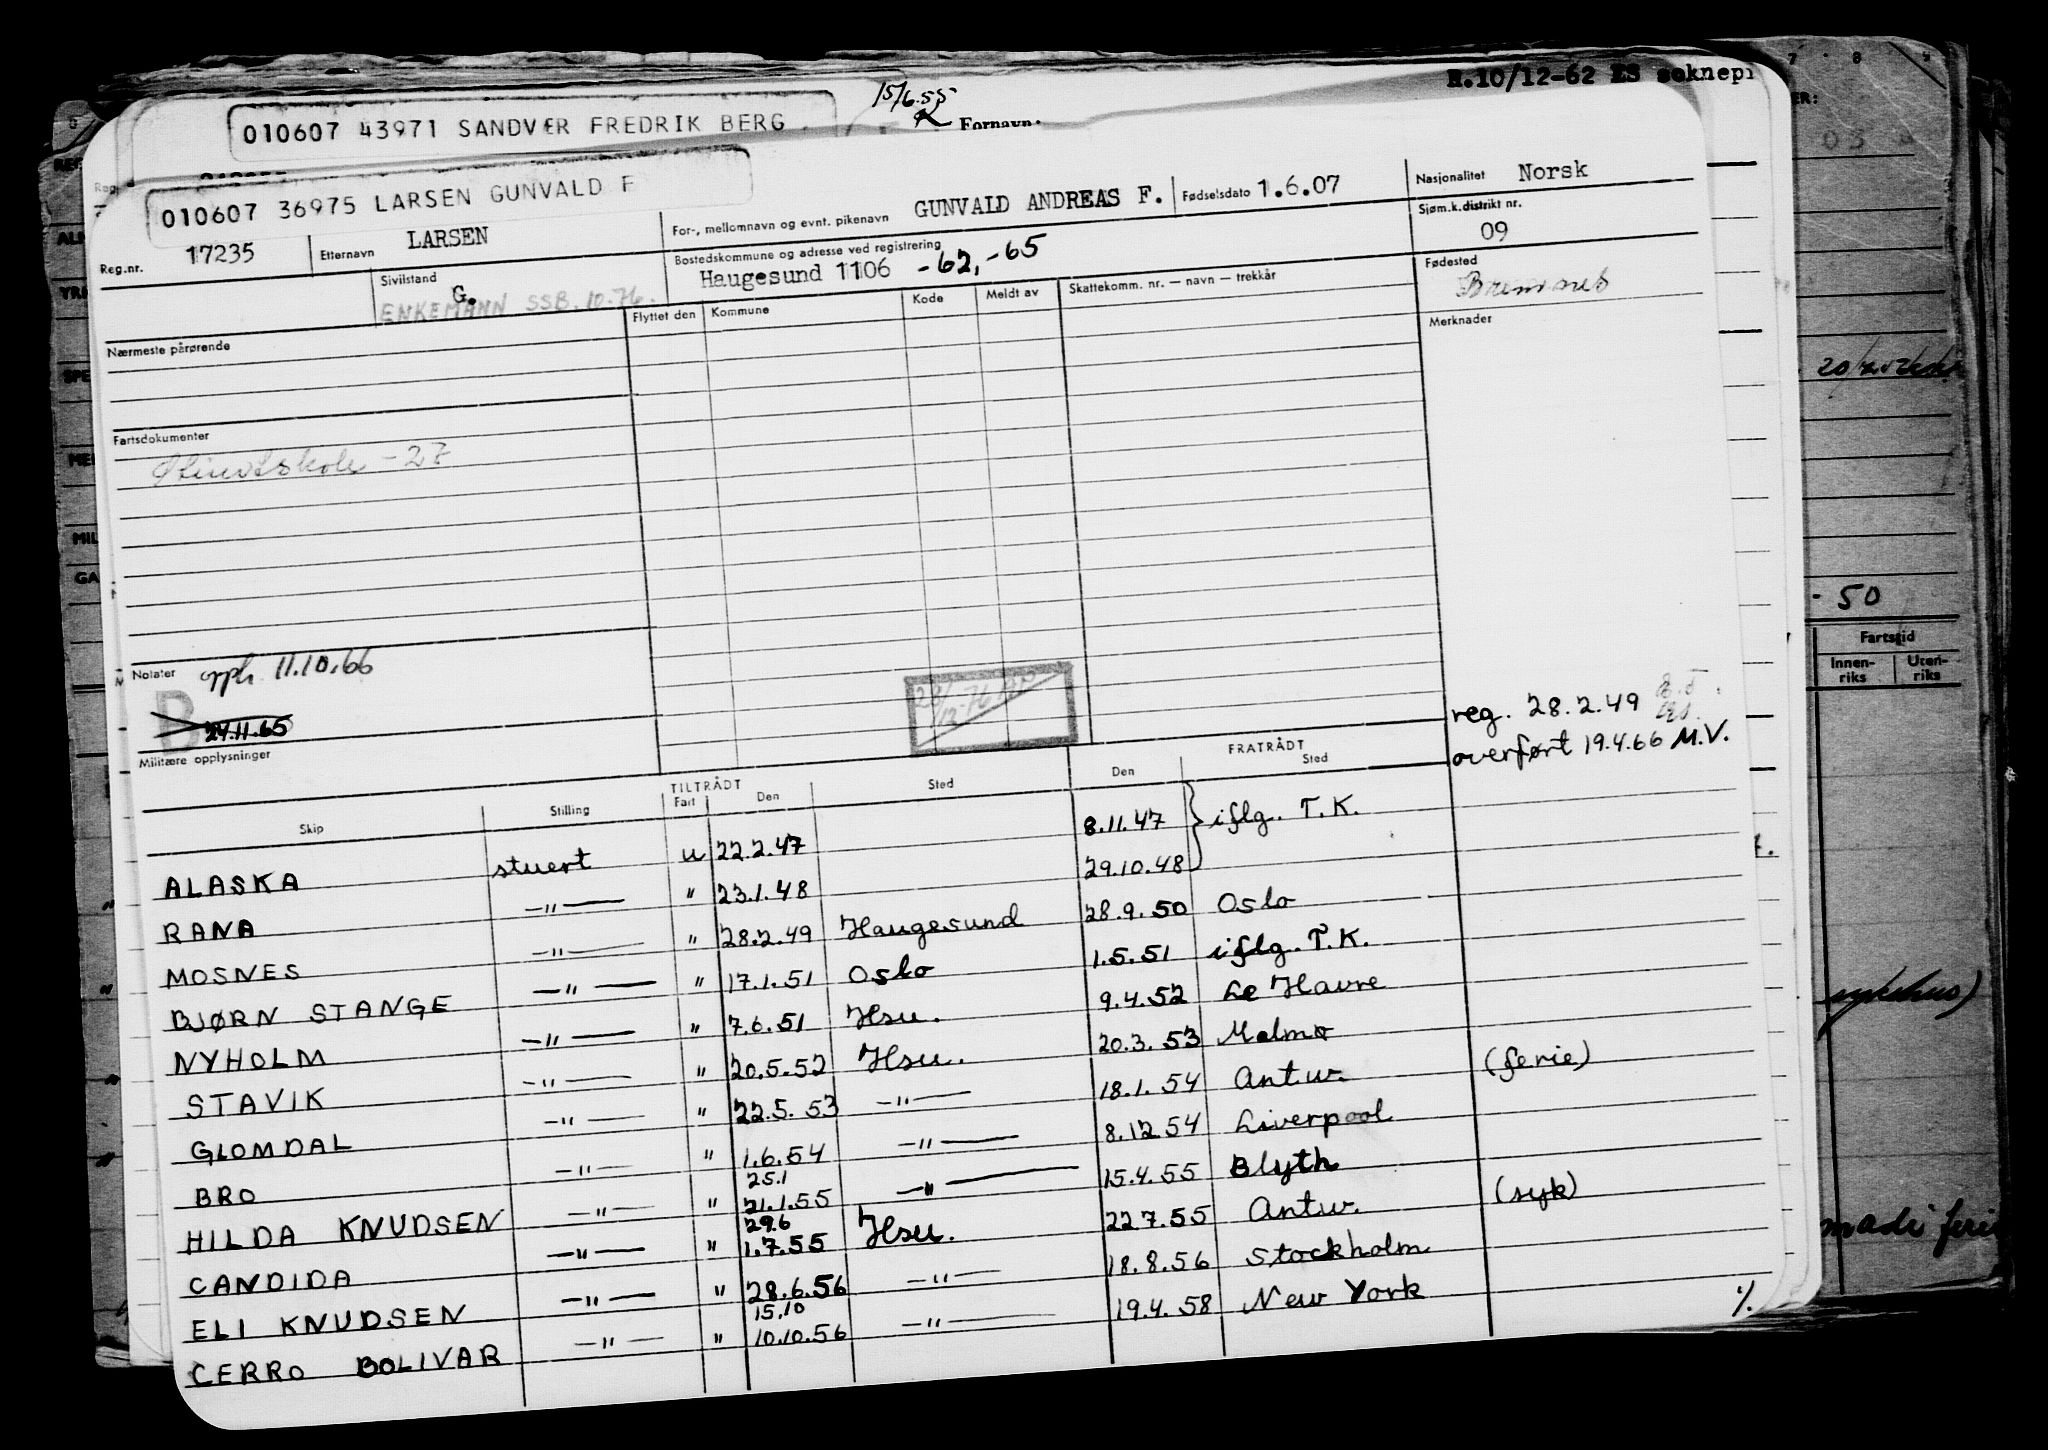 010607 43971 SANDVÆR FREDRIK BERG
15/6.55
Fornavn:
R.10/12-62 ES
010607 36975 LARSEN GUNVALD F
Reg.nr. 17235
Etternavn LARSEN
For-, mellomnavn og evnt. pikenavn GUNVALD ANDREAS F.
Fødselsdato 1.6.07
Nasjonalitet Norsk
Sjøm.k.distrikt nr. 09
Sivilstand G.
ENKEMANN SSB.10-76.
Bostedskommune og adresse ved registrering
Haugesund 1106 -62, -65
Fødested
Bremnes
Nærmeste pårørende
Flyttet den Kommune Kode Meldt av Skattekomm. nr. — navn — trekkår Merknader
Fartsdokumenter
-27
Notater opph. 11.10.66
B
24.11.65
Militære opplysninger
reg. 28.2.49
overført 19.4.66 M.V.
TILTRÅDT FRATRÅDT
Skip Stilling Fart Den Sted Den Sted
ALASKA stuert u 22.2.47 8.11.47 } iflg. T.K.
RANA —"— " 23.1.48 29.10.48
MOSNES —"— " 28.2.49 Haugesund 28.9.50 Oslo
BJØRN STANGE —"— " 17.1.51 Oslo 1.5.51 iflg. T.K.
NYHOLM —"— " 7.6.51 Hsu. 9.4.52 Le Havre
STAVIK —"— " 20.5.52 Hsu. 20.3.53 Malmø
GLOMDAL —"— " 22.5.53 —"— 18.1.54 Antw. (ferie)
BRO —"— " 1.6.54 —"— 8.12.54 Liverpool
25.1
HILDA KNUDSEN —"— " 21.1.55 —"— 15.4.55 Blyth
29.6
CANDIDA —"— " 1.7.55 Hsu. 22.7.55 Antw. (syk)
ELI KNUDSEN —"— " 28.6.56 —"— 18.8.56 Stockholm
15.10
CERRO BOLIVAR —"— " 10.10.56 —"— 19.4.58 New York
%
- 50
Fartstid
Innen-riks Uten-riks